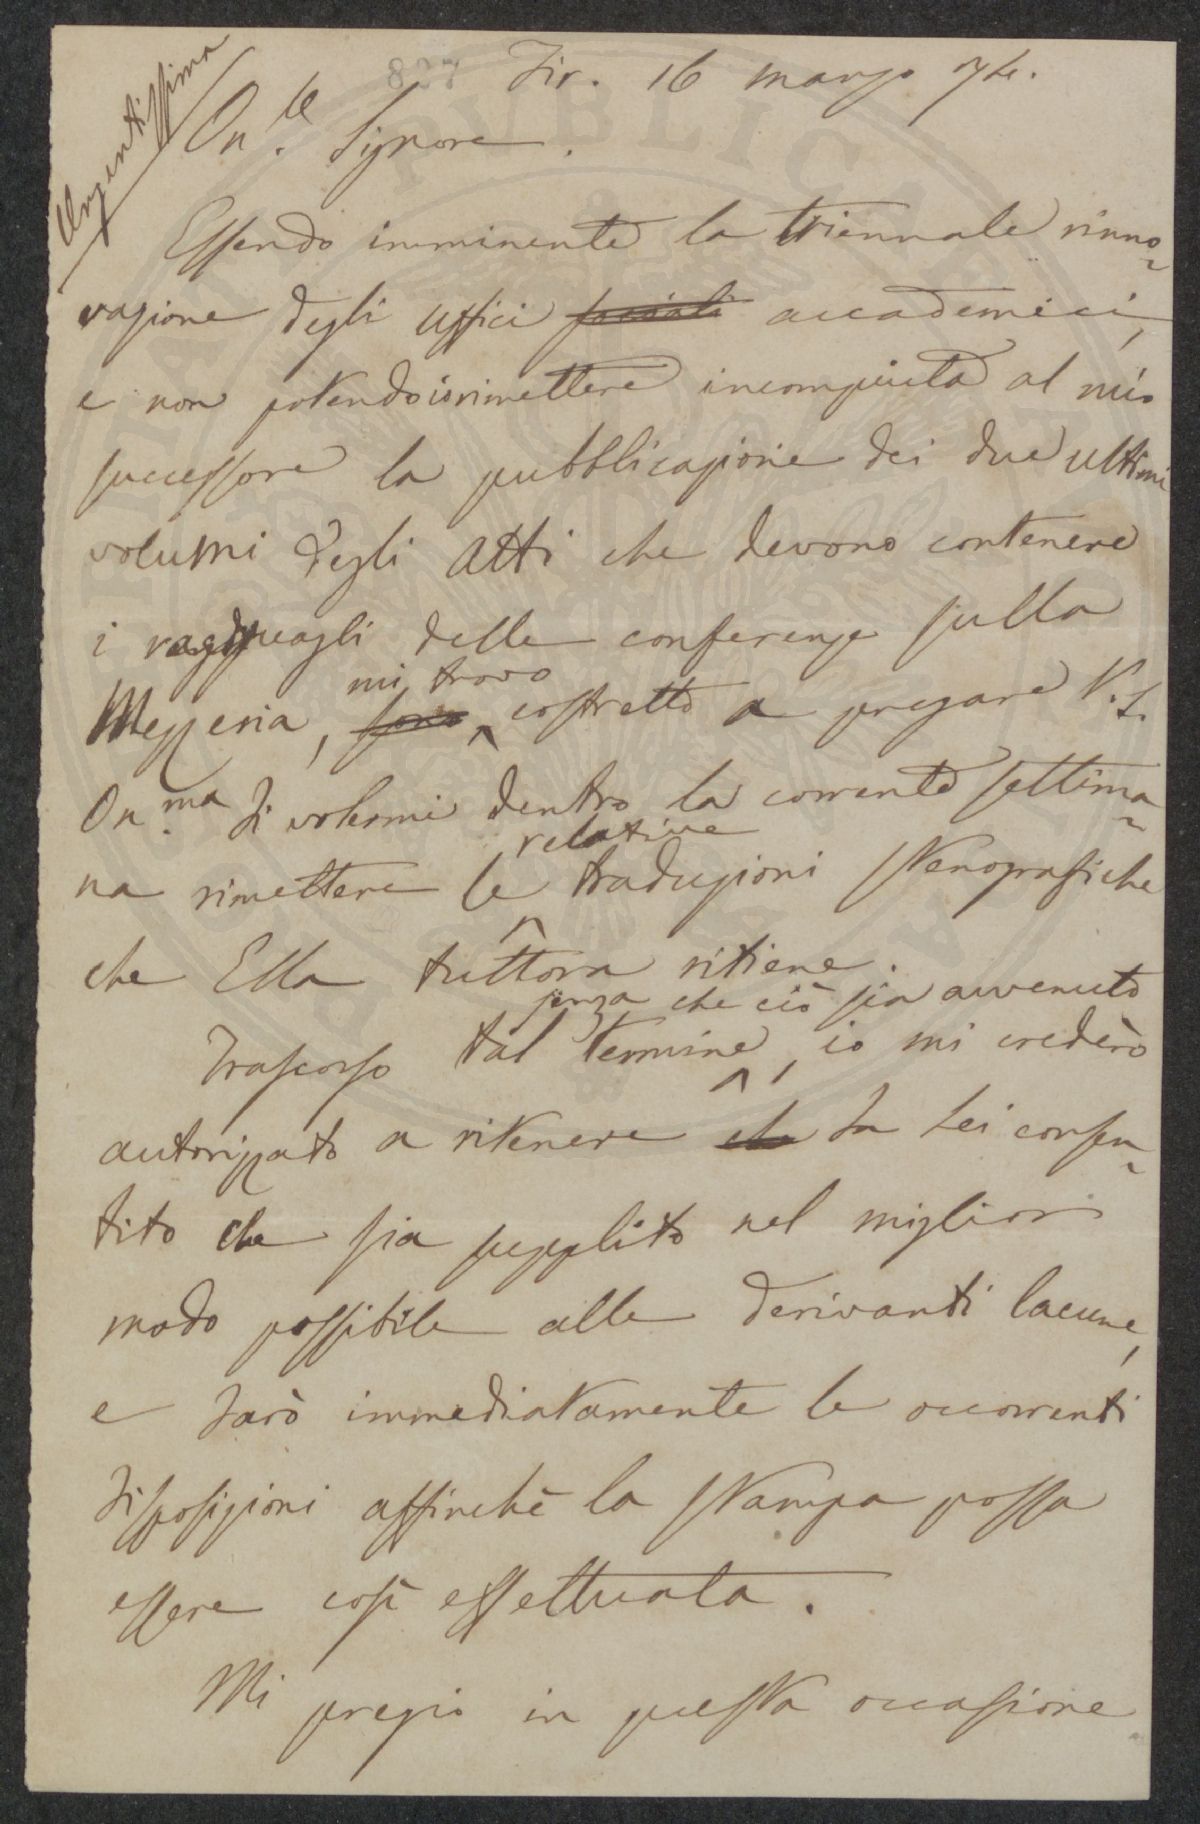 Urgentissima
827
Fir. 16 marzo 74.
On.le Signore.
Essendo imminente la triennale rinno-
vazione degli uffici sociali accademici,
e non potendo io rimettere incompiuta al mio
successore la pubblicazione dei due ultimi
volumi degli Atti che devono contenere
i ragguagli delle conferenze sulla
Mezzeria, sono mi trovo costretto a pregare V.S.
On.ma di volermi dentro la corrente settima-
na rimettere le relative traduzioni stenografiche
che Ella tuttora ritiene.
Trascorso tal termine senza che ciò sia avvenuto, io mi crederò
autorizzato a ritenere che da Lei consen-
tito che sia supplito nel miglior
modo possibile alle derivanti lacune,
e darò immediatamente le occorrenti
disposizioni affinchè la stampa possa
essere così effettuata.
Mi pregio in questa occasione